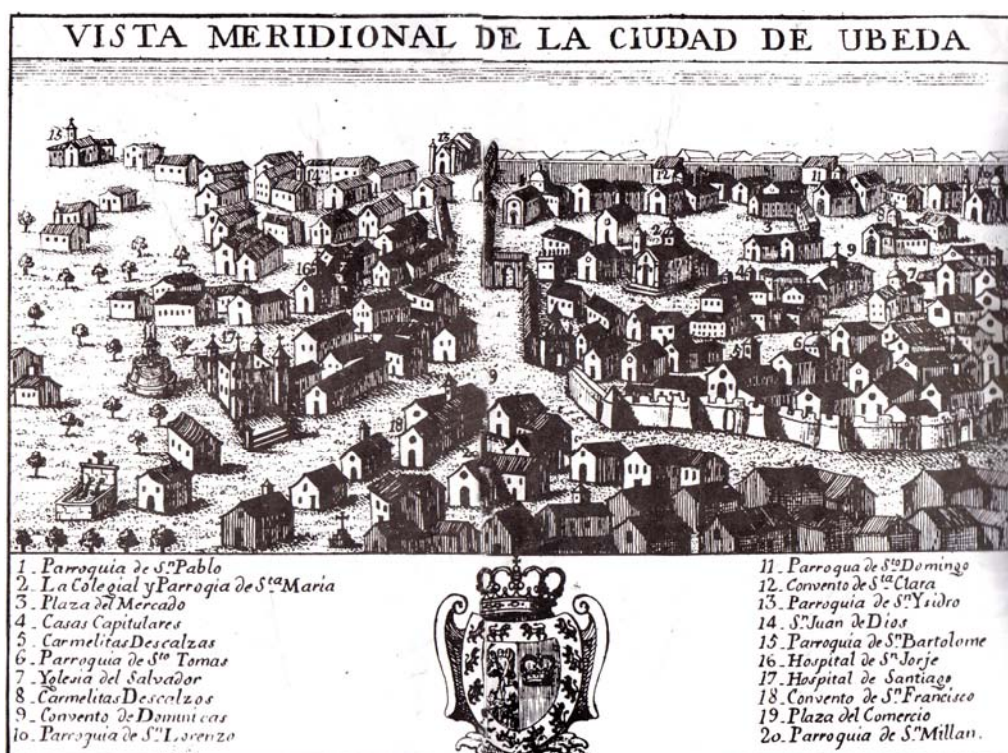 VISTA MERIDIONAL DE LA CIUDAD DE UBEDA
1_Parroquia de Sn. Pablo
2_La Colegial y Parrogia de Sta. Maria
3_Plaza del Mercado
4_Casas Capitulares
5_Carmelitas Descalzas
6_Parroquia de Sto Tomas
7_Yglesia del Salvador
8_Carmelitas Descalzos
9_Convento de Dominicas
10_Parroquia de Sn. Lorenzo
11_Parroqua de Sto Domingo
12_Convento de Sta. Clara
13_Parroquia de Sn. Ysidro
14_Sn. Juan de Dios
15_Parroquia de Sn. Bartolome
16_Hospital de Sn Jorje
17_Hospital de Santiago
18_Convento de Sn. Francisco
19_Plaza del Comercio
20_Parroquia de Sn. Millan.